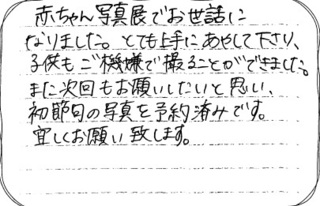 赤ちゃん写真展でお世話に
なりました。とても上手にあやして下さり、
子供もご機嫌で撮ることができました。
また次回もお願いしたいと思い、
初節句の写真を予約済みです。
宜しくお願い致します。